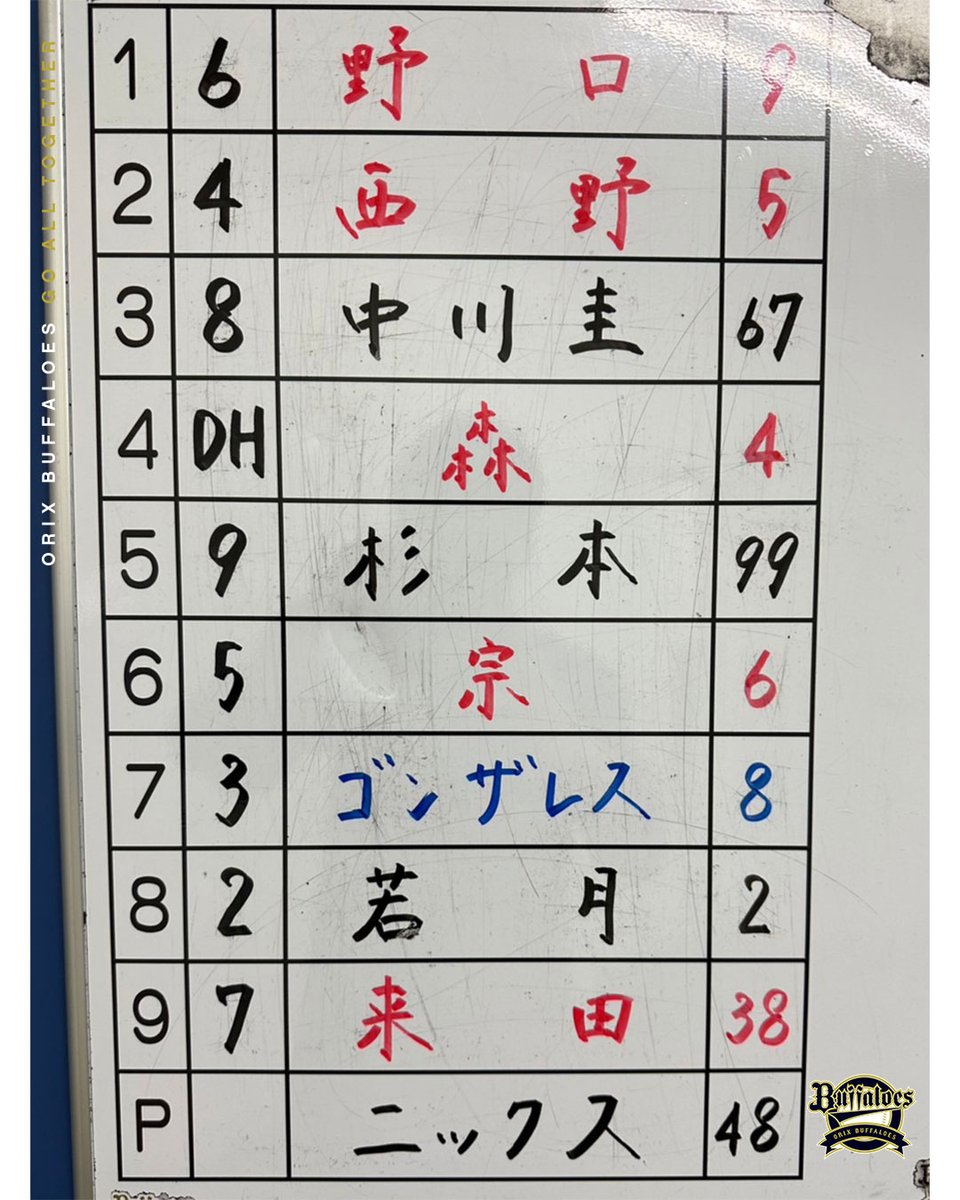 1 6 野口 9
2 4 西野 5
3 8 中川圭 67
4 DH 森 4
5 9 杉本 99
6 5 宗 6
7 3 ゴンザレス 8
8 2 若月 2
9 7 来田 38
P ニックス 48
ORIX BUFFALOES GO ALL TOGETHER
Buffaloes
ORIX BUFFALOES